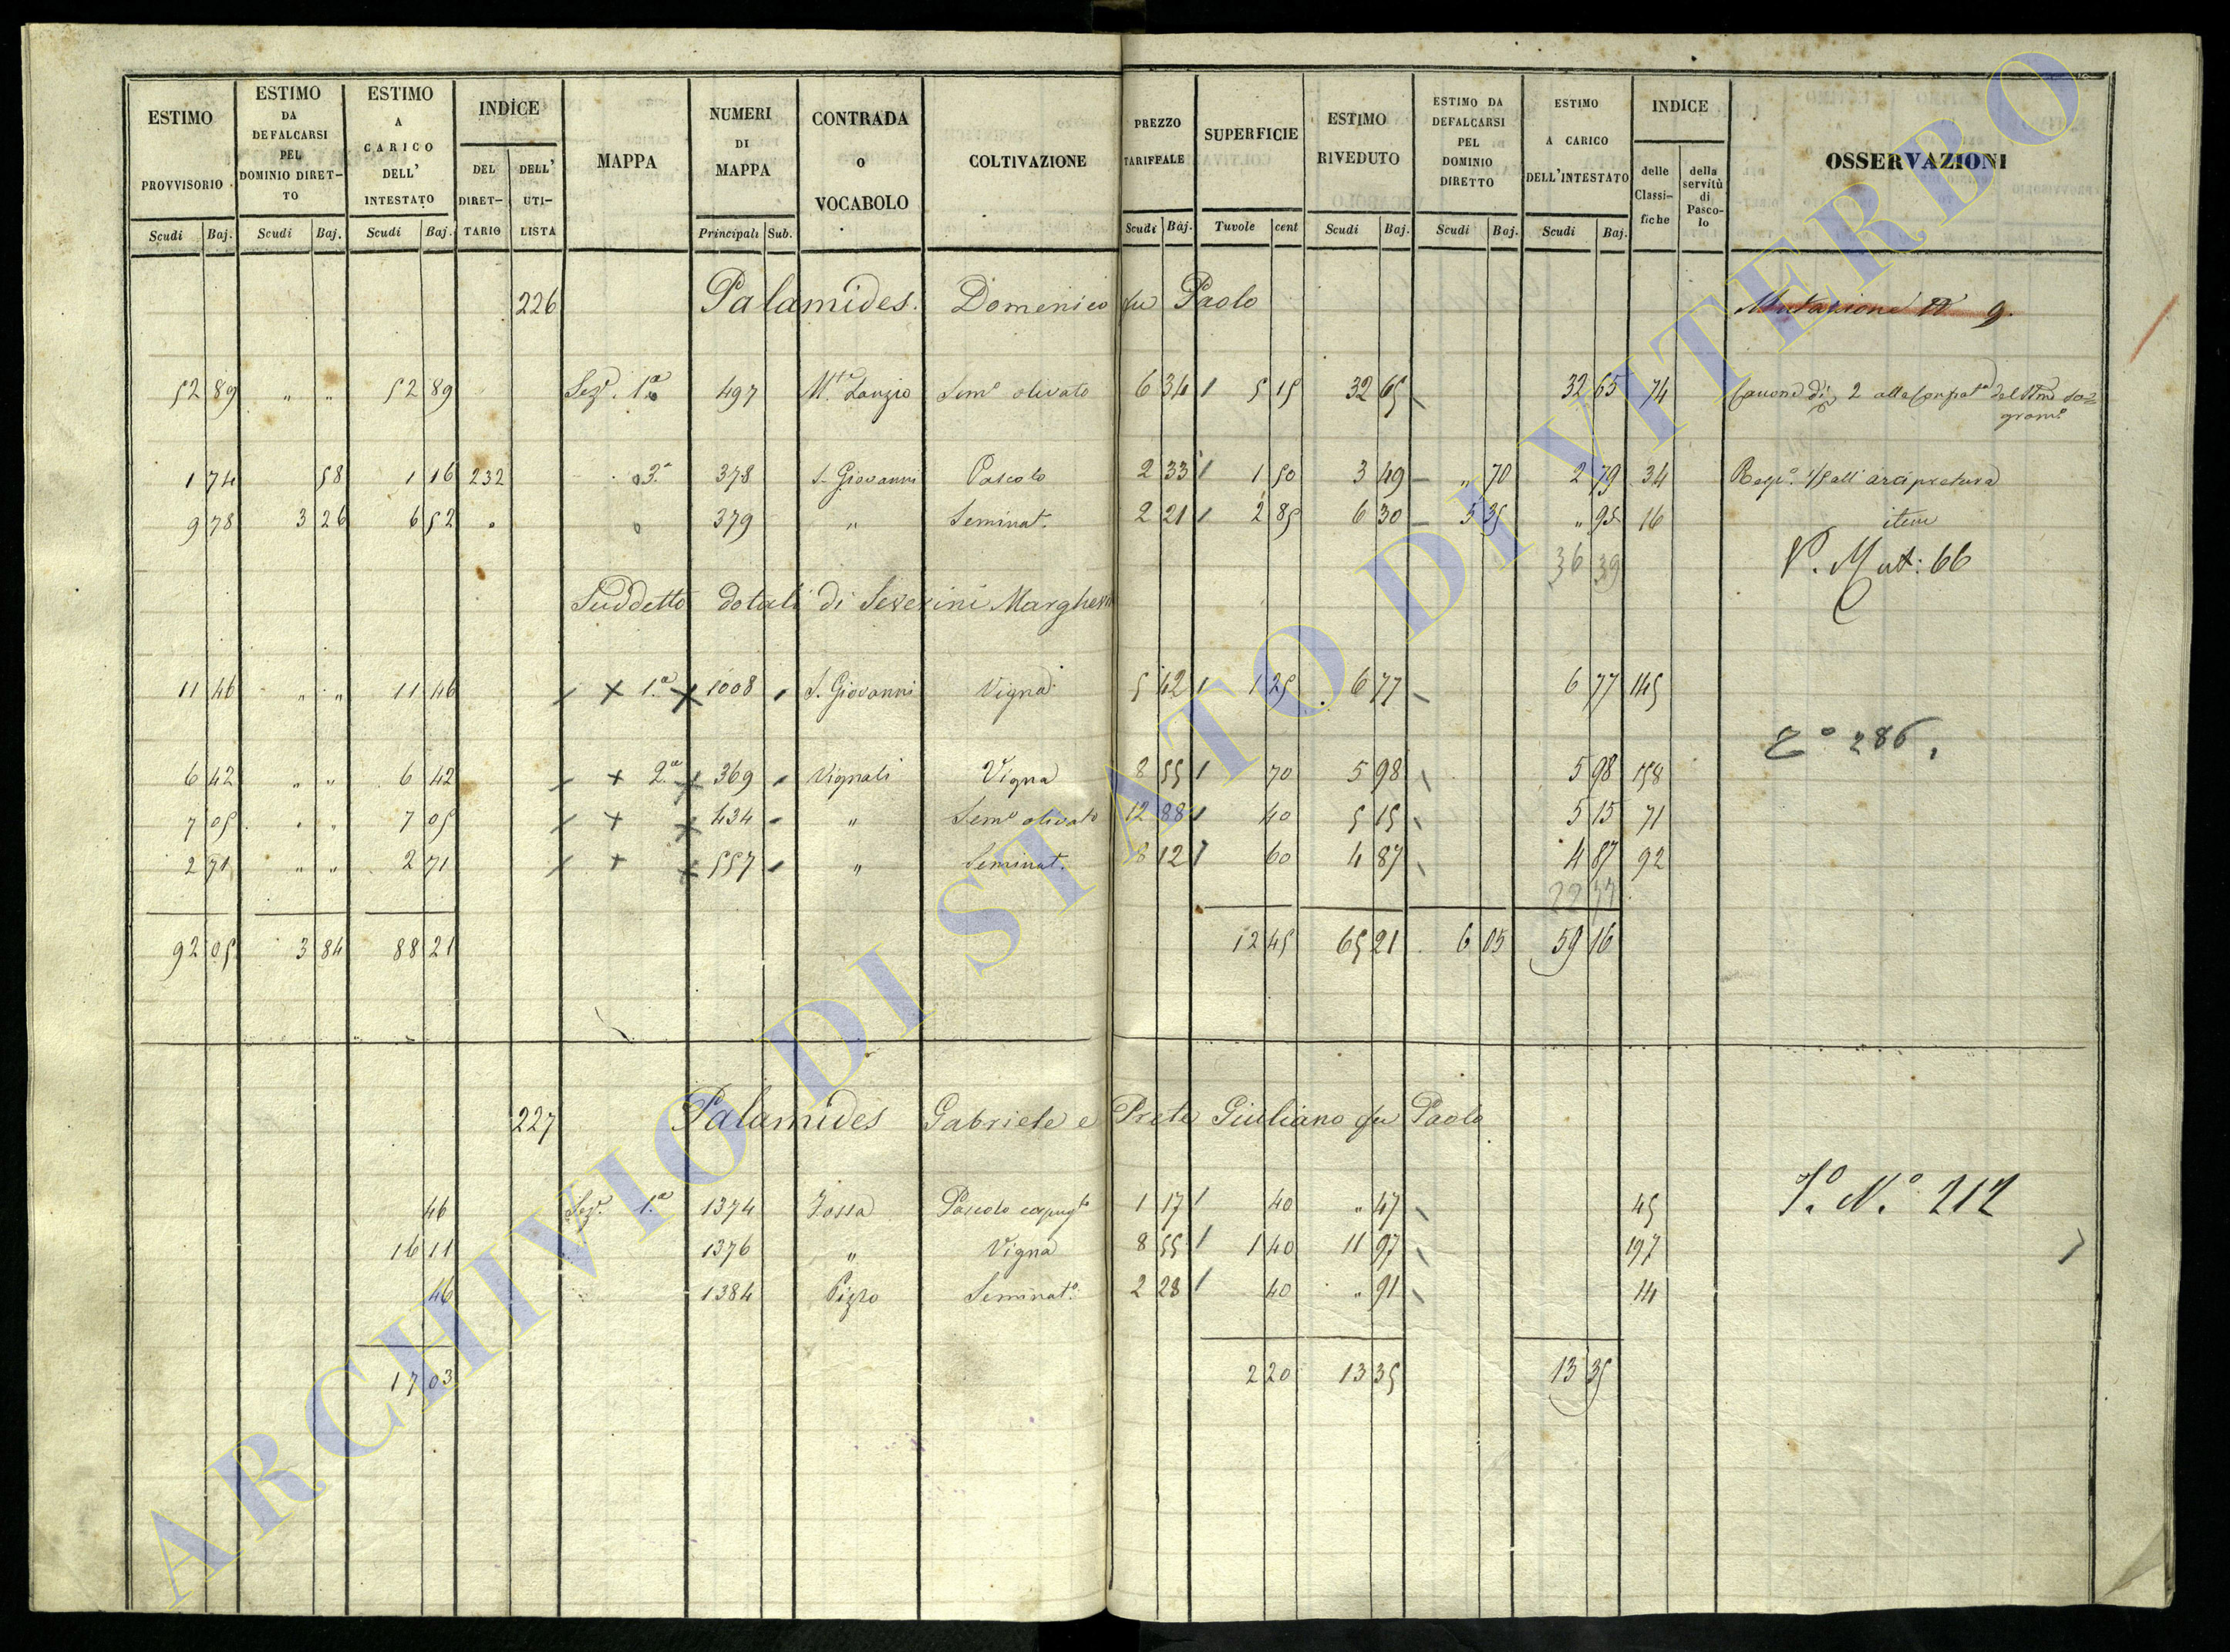 ESTIMO PROVVISORIO | ESTIMO DA DEFALCARSI PEL DOMINIO DIRETTO | ESTIMO A CARICO DELL' INTESTATO | INDICE DEL DIRET-TARIO | DELL' UTI-LISTA | MAPPA | NUMERI DI MAPPA | CONTRADA O VOCABOLO | COLTIVAZIONE | PREZZO TARIFFALE | SUPERFICIE | ESTIMO RIVEDUTO | ESTIMO DA DEFALCARSI PEL DOMINIO DIRETTO | ESTIMO A CARICO DELL'INTESTATO | INDICE delle Classi-fiche | della servitù di Pasco-lo | OSSERVAZIONI
Scudi Baj. | Scudi Baj. | Scudi Baj. | Principali Sub. | Scudi Baj. | Tavole cent | Scudi Baj. | Scudi Baj. | Scudi Baj.
226 Palamides. Domenico fu Paolo Mutazione N 9.
52 89 " " 52 89 Seze. 1a 497 Mte. Lauzio Semo olivato 6 34 5 15 32 65 32 65 74 2 alla del
1 74 58 1 16 232 3a 378 S. Giovanni Pascolo 2 33 1 50 3 49 " 70 2 79 34 1/5 all' arcipretura
9 78 3 26 6 52 379 " Seminat. 2 21 2 85 6 30 5 35 " 95 16 item
36 39 V. Mut: 66
Suddetto dotali di Severini Margherita
11 46 " " 11 46 x 1.a x 1008 S. Giovanni Vigna 5 42 1 25 6 77 6 77 145
Vo 286.
6 42 " " 6 42 + 2a x 369 Vignali Vigna 8 55 70 5 98 5 98 158
7 05 " " 7 05 + x 434 " Semo olivato 12 88 40 5 15 5 15 71
2 71 " " 2 71 + x 557 " Seminat. 8 12 60 4 87 4 87 92
22 77
92 05 3 84 88 21 12 45 65 21 6 05 59 16
227 Palamides Gabriele e Prete Giuliano fu Paolo
V. No. 212
46 Sez. 1.a 1374 Fossa Pascolo 1 17 40 " 47 45
16 11 1376 " Vigna 8 55 1 40 11 97 197
46 1384 Pizzo Seminato. 2 28 40 " 91 14
17 03 2 20 13 35 13 35
ARCHIVIO DI STATO DI VITERBO